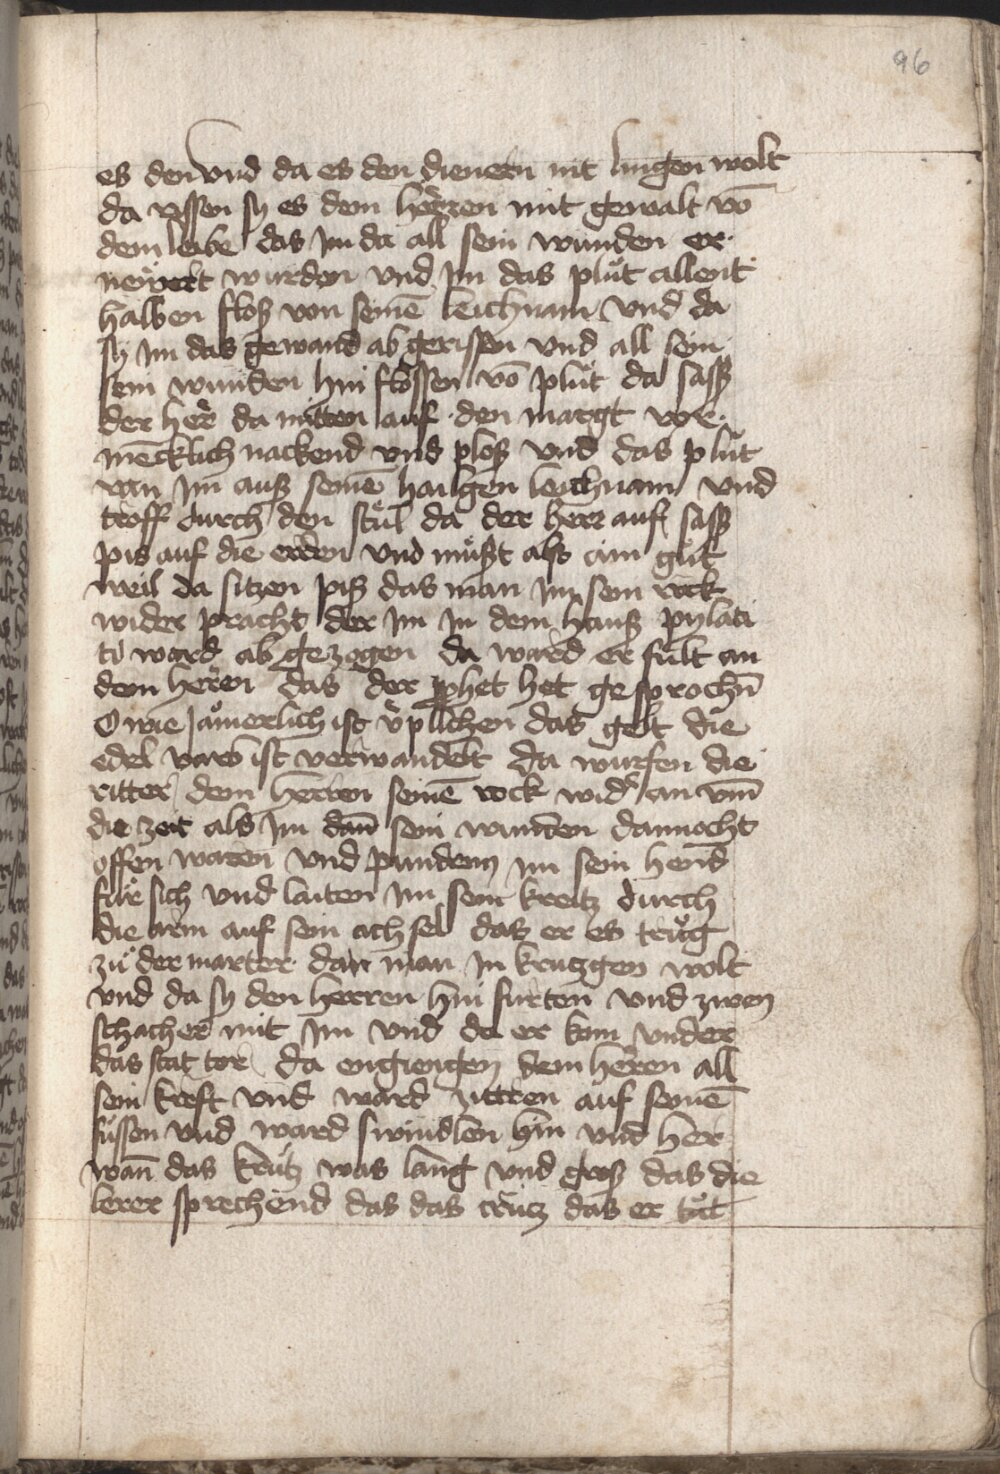 96
es den vnd da es den dienern nit lingen wolt
da rissen sy es dem herrzen mit gewalt võ
dem leibe das Jm da all sein wunden er
newert wurden vnd Jm das plůt allent
halben floß von seinē leichnam vnd da
sy Jm das gewand ab gerissen vnd all sein
sein wunden hin flossen võ plůt da sasß
der herr da mitten auf den margt vor
mēcklich nackend vnd ploß vnd das plůt
ran Jm auß seinē hailgen leichnam vnd
troff durch den stůl da der herr auf sasß
pis auf die erden vnd můßt also ain gůt
weil da sitzen piß das man Jm sein rock
wider pracht der Jm Jn dem hauß pylati
ti ward ab gezogen da ward er fult an
dem herren das der pphet het gesprochn̄
O wie Jamerlich ist v̈plichen das golt die
edel varb ist verwandelt da wurfen die
ritter dem herren seinē rock wid' an vm̄
die zeit als Jm dañ sein wunden dannocht
offen waren vnd punden im sein hend
für sich vnd laiten im sein kreitz durch
die arm auf sein achsel das er es trůg
zů der marter dan man Jn kruczgen wolt
vnd da sy den herren hin furten vnd zwen
schacher mit Jm vnd da er kom vnder
das stat tor da engiengen dem herren all
sein kreft vnd ward zittren auf seinē
fůssen vnd ward swindlen hin vnd her
wañ das krütz was lang vnd groß das die
lerer sprechend das das crütz das er tůt